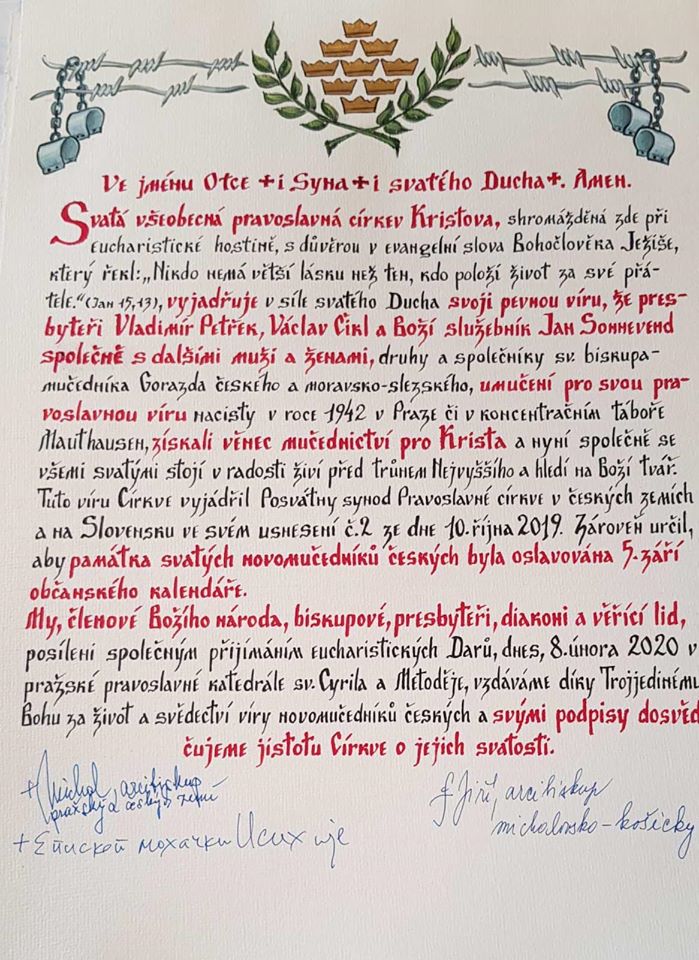 Ve jménu Otce + i Syna + i svatého Ducha +. Amen.
Svatá všeobecná pravoslavná církev Kristova, shromážděná zde při
eucharistické hostině, s důvěrou v evangelní slova Bohočlověka Ježíše,
který řekl: „Nikdo nemá větší lásku než ten, kdo položí život za své přá-
tele.“ (Jan 15,13), vyjadřuje v síle svatého Ducha svoji pevnou víru, že pres-
byteři Vladimír Petřek, Václav Čikl a Boží služebník Jan Sonnevend
společně s dalšími muži a ženami, druhy a společníky sv. biskupa-
mučedníka Gorazda českého a moravsko-slezského, umučení pro svou pra-
voslavnou víru nacisty v roce 1942 v Praze či v koncentračním táboře
Mauthausen, získali věnec mučednictví pro Krista a nyní společně se
všemi svatými stojí v radosti živí před trůnem Nejvyššího a hledí na Boží tvář.
Tuto víru Církve vyjádřil Posvátný synod Pravoslavné církve v českých zemích
a na Slovensku ve svém usnesení č.2 ze dne 10. října 2019. Zároveň určil,
aby památka svatých novomučedníků českých byla oslavována 5. září
občanského kalendáře.
My, členové Božího národa, biskupové, presbyteři, diakoni a věřící lid,
posíleni společným přijímáním eucharistických Darů, dnes, 8. února 2020 v
pražské pravoslavné katedrále sv. Cyrila a Metoděje, vzdáváme díky Trojjedinému
Bohu za život a svědectví víry novomučedníků českých a svými podpisy dosvěd
čujeme jistotu Církve o jejich svatosti.
+ Michal, arcibiskup
pražský a českých zemí
+ Jiří, arcibiskup
michalovsko-košický
+ Епископ мохачки Исихије